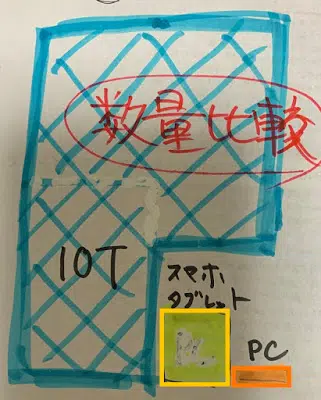 数量比較
IOT
スマホ
タブレット
PC